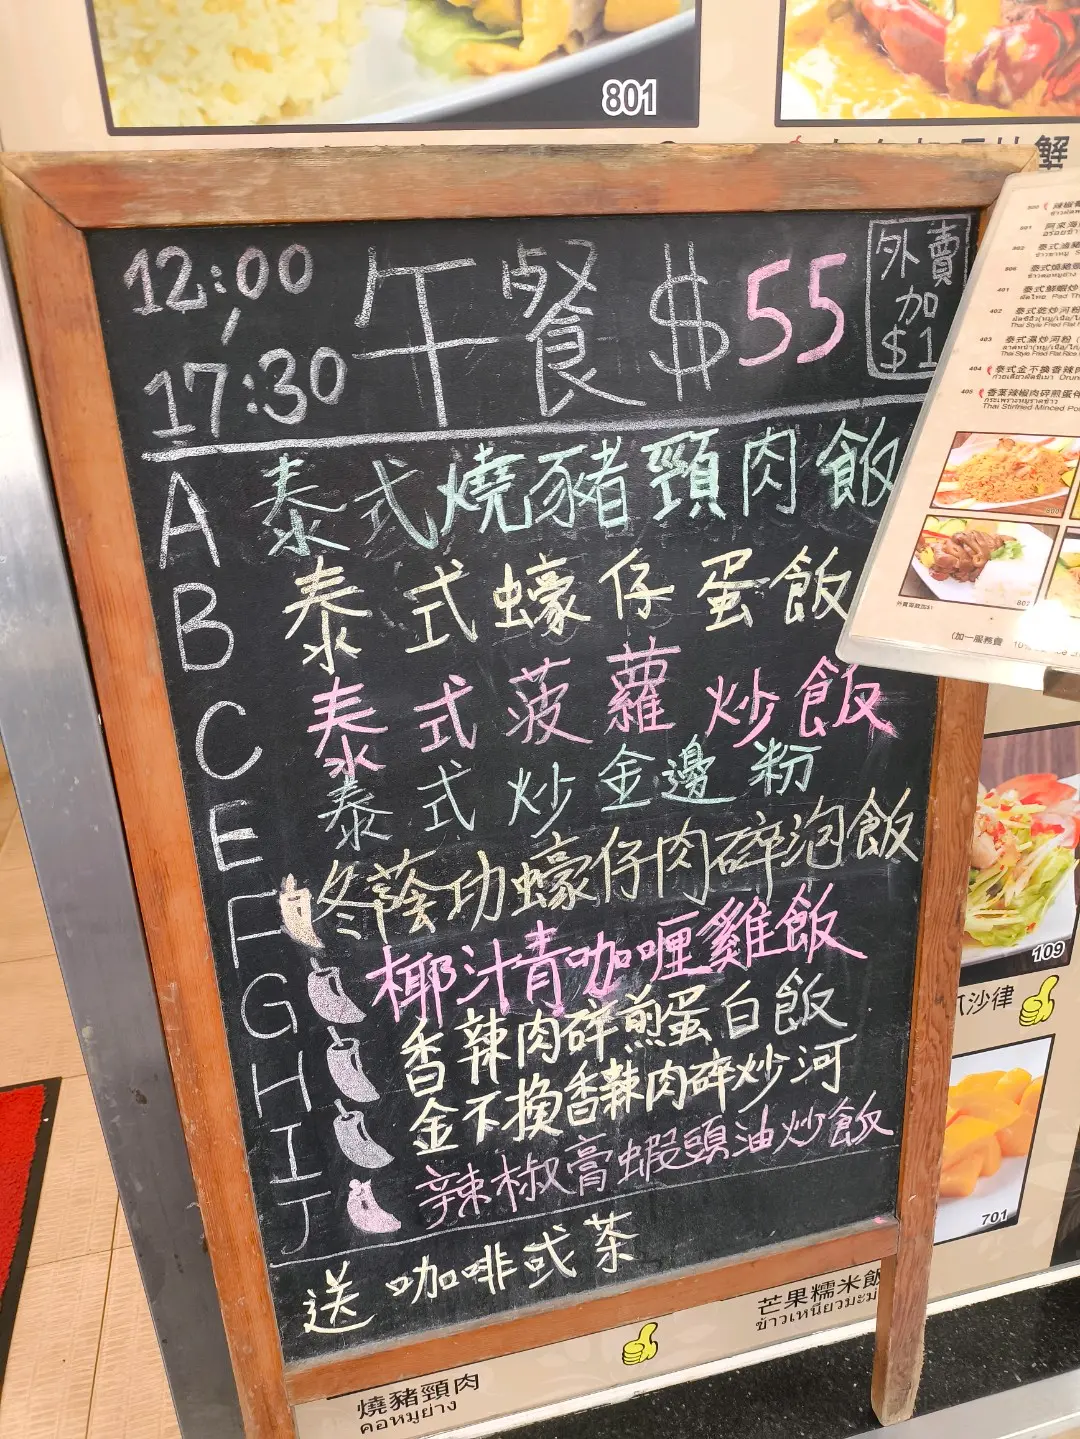 801
蟹
12:00
,
17:30
午餐 $55
外賣
加
$1
A 泰式燒豬頸肉飯
B 泰式蠔仔蛋飯
C 泰式菠蘿炒飯
E 泰式炒金邊粉
F 冬蔭功蠔仔肉碎泡飯
G 椰汁青咖喱雞飯
H 香辣肉碎煎蛋白飯
I 金不換香辣肉碎炒河
J 辣椒膏蝦頭油炒飯
送 咖啡或茶
801
802
402
403
404
405
Thai Style Fried Flat Rice
Thai Stirfried Minced Po
802
(加一服務費
109
沙律
701
芒果糯米飯
ข้าวเหนียวมะม่
燒豬頸肉
คอหมูย่าง